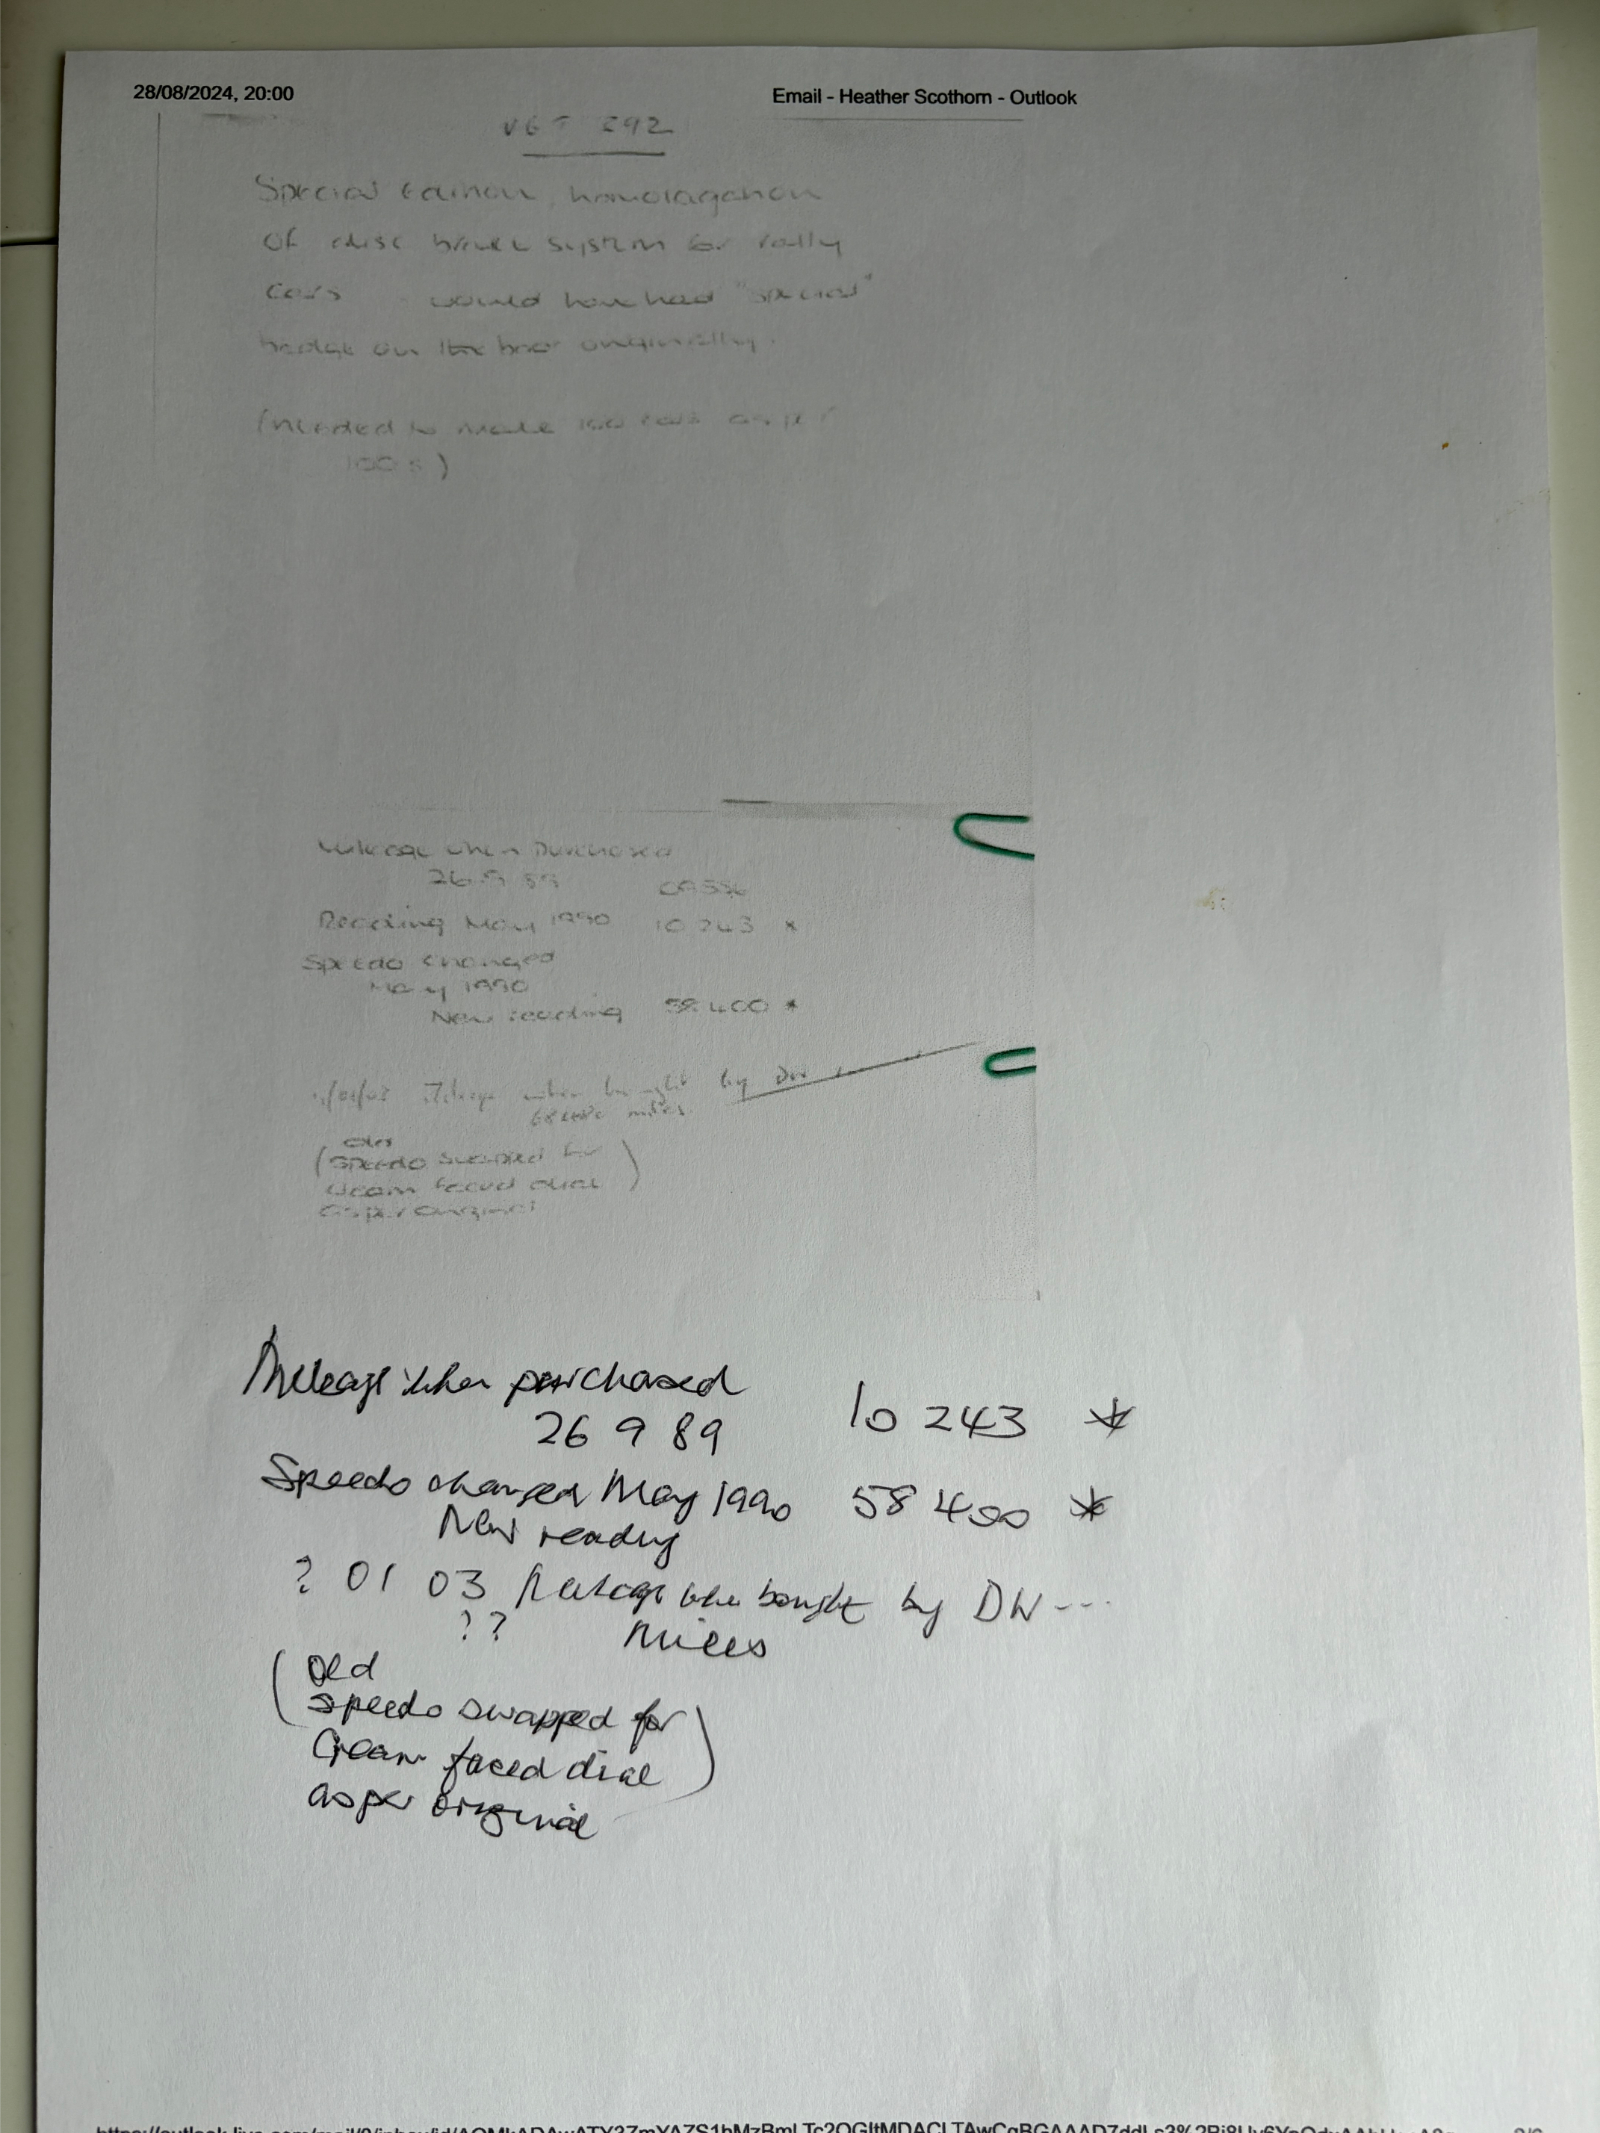 28/08/2024, 20:00 Email - Heather Scothorn - Outlook
292
Special Edition, homologation
of disc brake system for rally
cars would have had "special"
badge on the boot originally.
(needed to make 100 cars as per
100 s)
Mileage when purchased
26 9 89
Reading May 1990 10 243 *
Speedo changed
May 1990
New reading 58 400 *
when bought by DW
miles
(old
speedo swapped for
cream faced dial)
as per original
Mileage when purchased
26 9 89 10 243 *
Speedo changed May 1990 58 400 *
New reading
? 01 03 Mileage when bought by DW ---
?? Miles
(old
speedo swapped for
Cream faced dial)
as per original